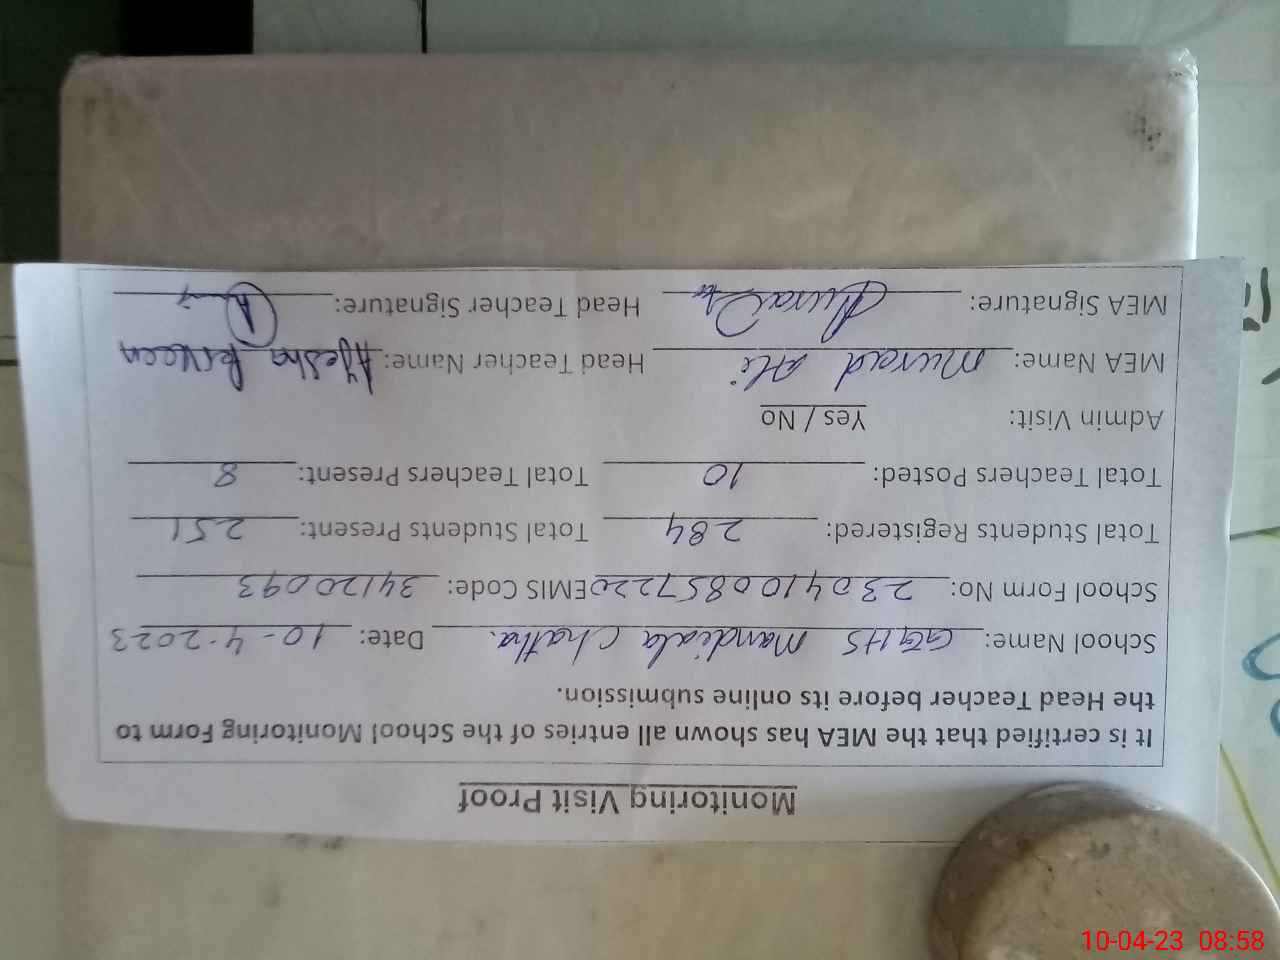 Monitoring Visit Proof
It is certified that the MEA has shown all entries of the School Monitoring Form to
the Head Teacher before its online submission.
School Name: GGHS Mandiala Chatha. Date: 10-4-2023
School Form No: 2304100857220 EMIS Code: 34120093
Total Students Registered: 284 Total Students Present: 251
Total Teachers Posted: 10 Total Teachers Present: 8
Admin Visit: Yes / No
MEA Name: Murad Ali Head Teacher Name: Ayesha Perveen
MEA Signature: Head Teacher Signature:
10-04-23 08:58